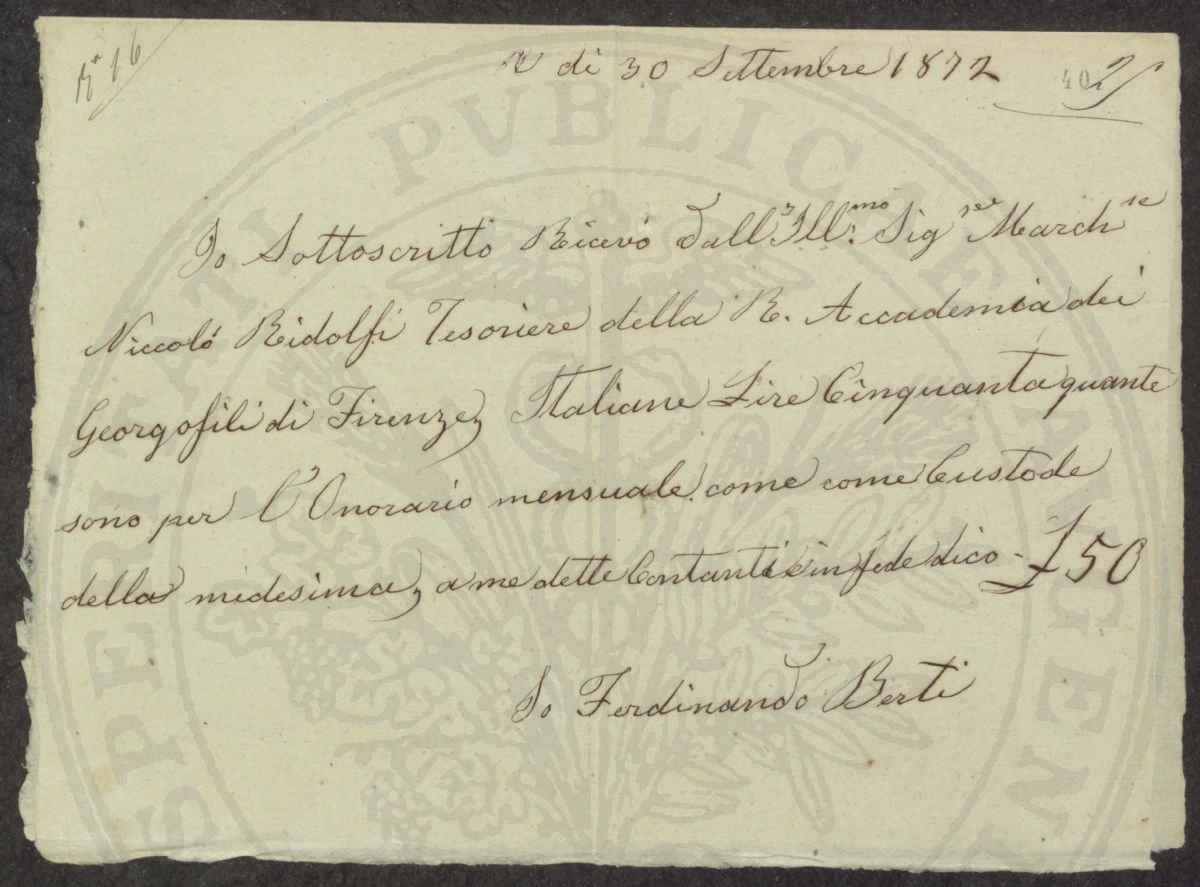 Rta 16
A dì 30 Settembre 1872
402
Io Sottoscritto Ricevo dall'Ill:mo Sigre Marchse
Niccoló Ridolfi Tesoriere della R. Accademia dei
Georgofili di Firenze, Italiane Lire Cinquanta quante
sono per l'Onorario mensuale come come Custode
della midesima, a me dette Contanti e in fede dico - £ 50
Io Ferdinando Berti
PROSPERITATI PVBLICAE AVGENDAE